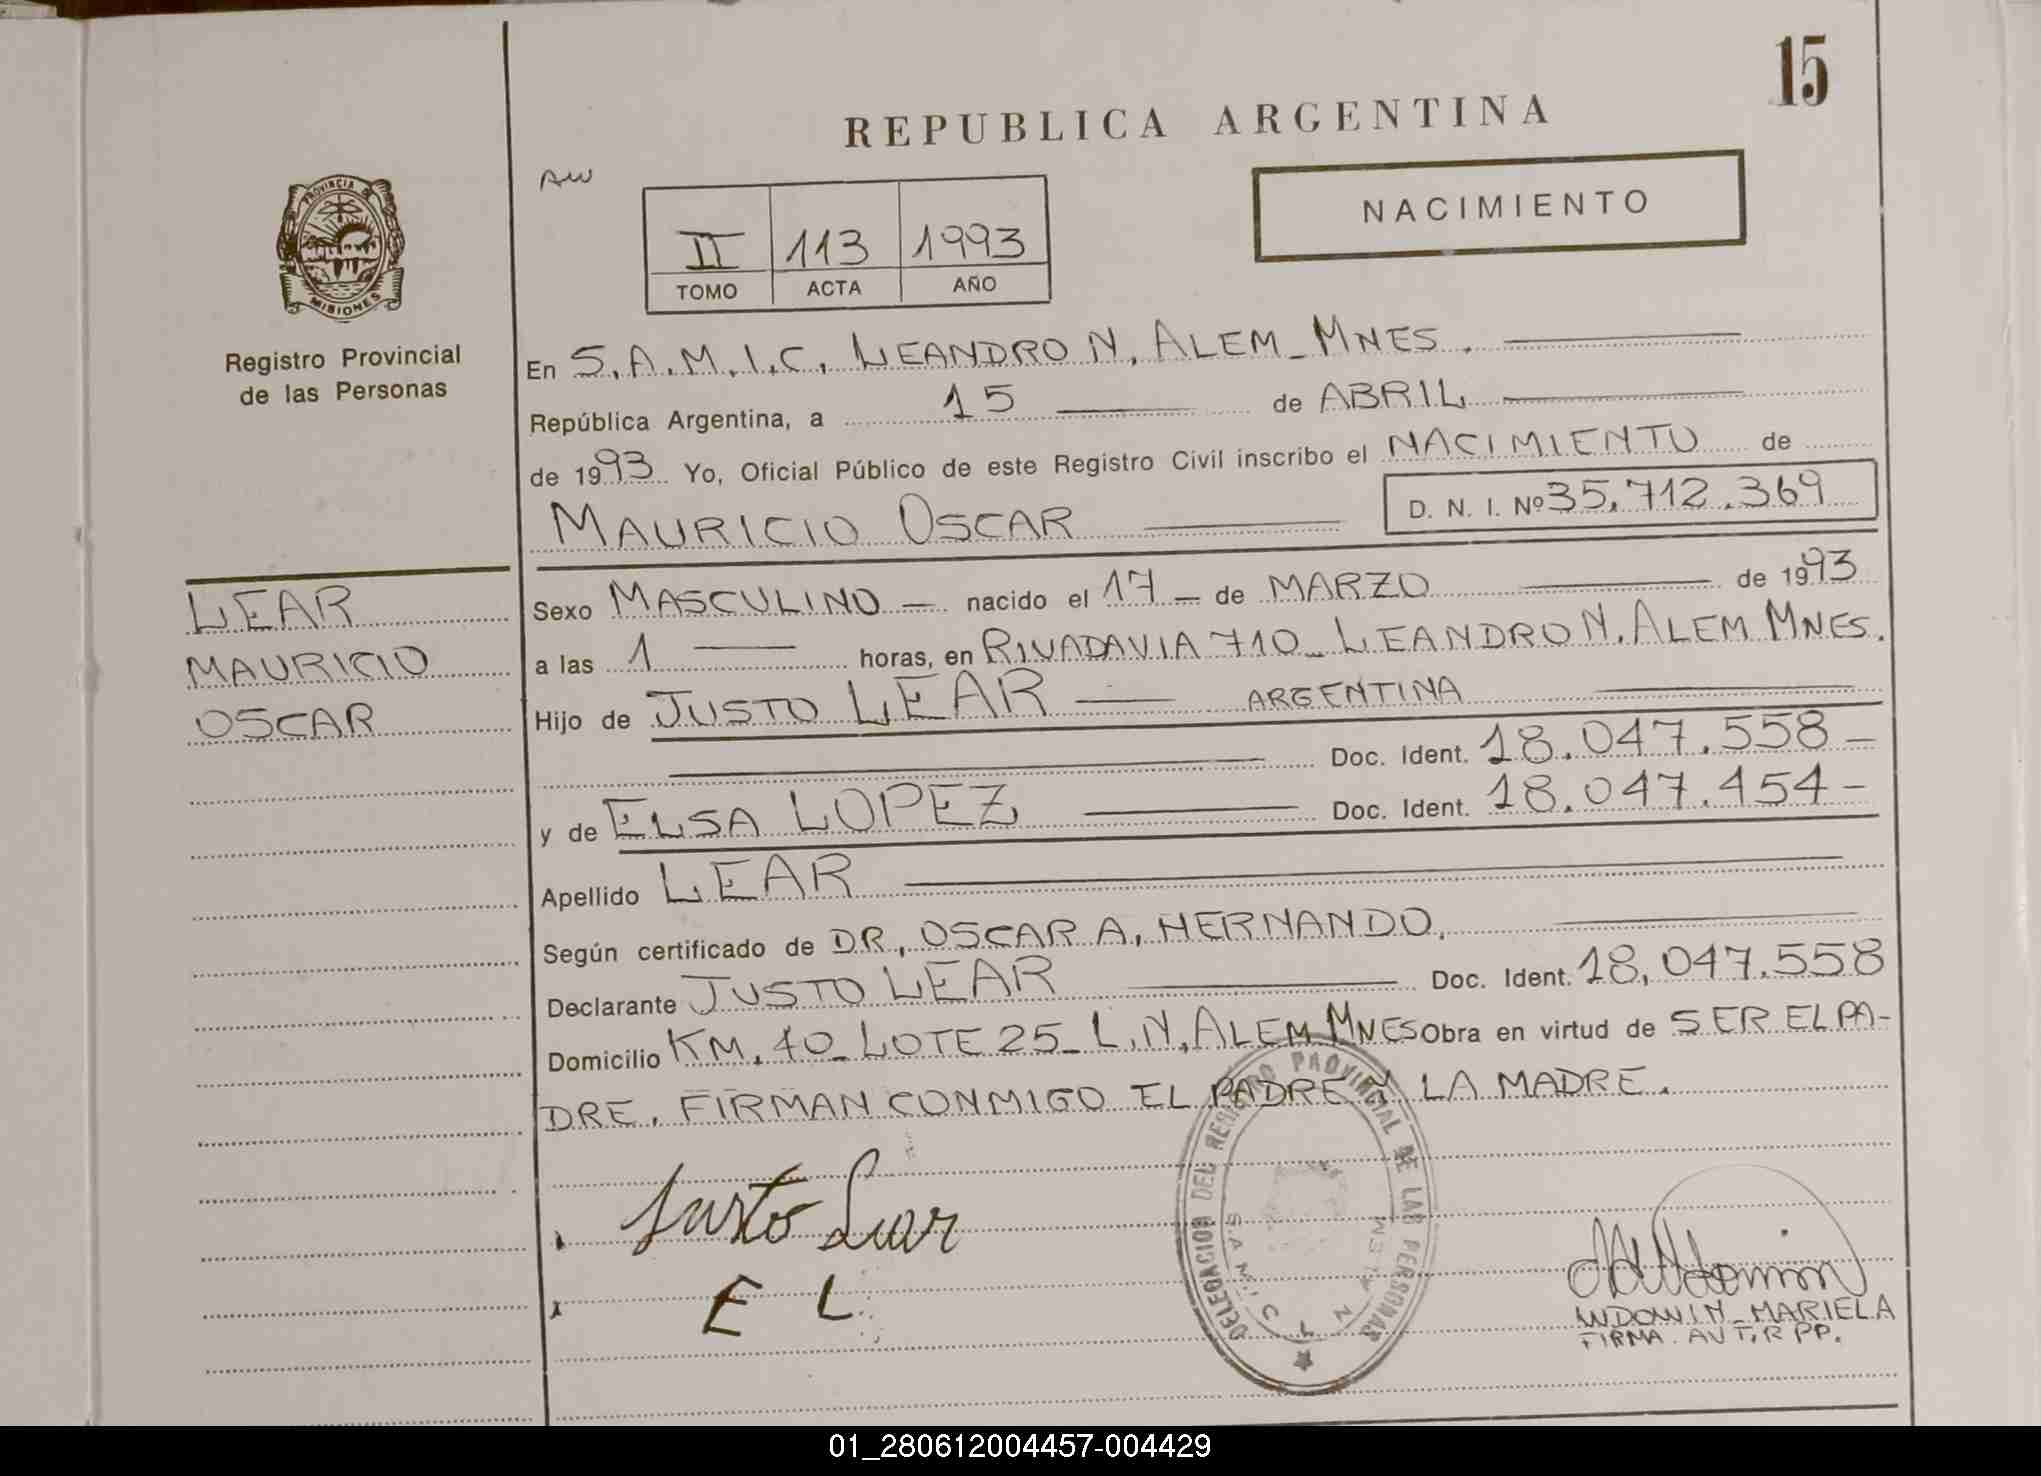 15
REPUBLICA ARGENTINA
AW
NACIMIENTO
II 113 1993
TOMO ACTA AÑO
PROVINCIA DE
MISIONES
Registro Provincial
de las Personas
En S.A.M.I.C. LEANDRO N. ALEM_MNES.
República Argentina, a 15 de ABRIL
de 1993 Yo, Oficial Público de este Registro Civil inscribo el NACIMIENTO de
MAURICIO OSCAR D. N. I. Nº 35.712.369
LEAR
MAURICIO
OSCAR
Sexo MASCULINO — nacido el 17 — de MARZO de 1993
a las 1 horas, en RIVADAVIA 710_ LEANDRO N. ALEM MNES.
Hijo de JUSTO LEAR — ARGENTINA
Doc. Ident. 18.047.558 —
y de ELSA LOPEZ Doc. Ident. 18.047.454 —
Apellido LEAR
Según certificado de DR. OSCAR A. HERNANDO.
Declarante JUSTO LEAR Doc. Ident. 18.047.558
Domicilio KM. 40_ LOTE 25_ L.N. ALEM MNES Obra en virtud de SER EL PA-
DRE. FIRMAN CONMIGO EL PADRE Y LA MADRE.
DELEGACION DEL REGISTRO PROVINCIAL DE LAS PERSONAS
S.A.M.I.C. L N ALEM
Justo Lear
E L
WDOWIN_MARIELA
FIRMA AUT. R PP.
01_280612004457-004429